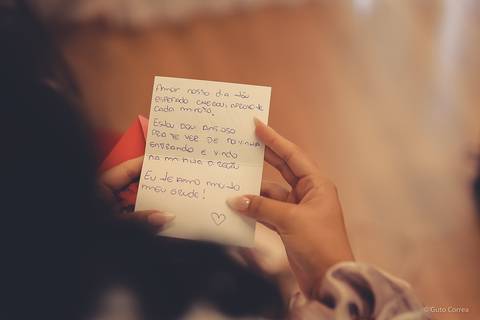 Amor nosso dia tão
esperado chegou, aproveite
cada minuto.
Estou sou ansioso
pra te ver de noivinha
entrando e vindo
na minha direção
Eu te amo muito
meu grude!
© Guto Correa